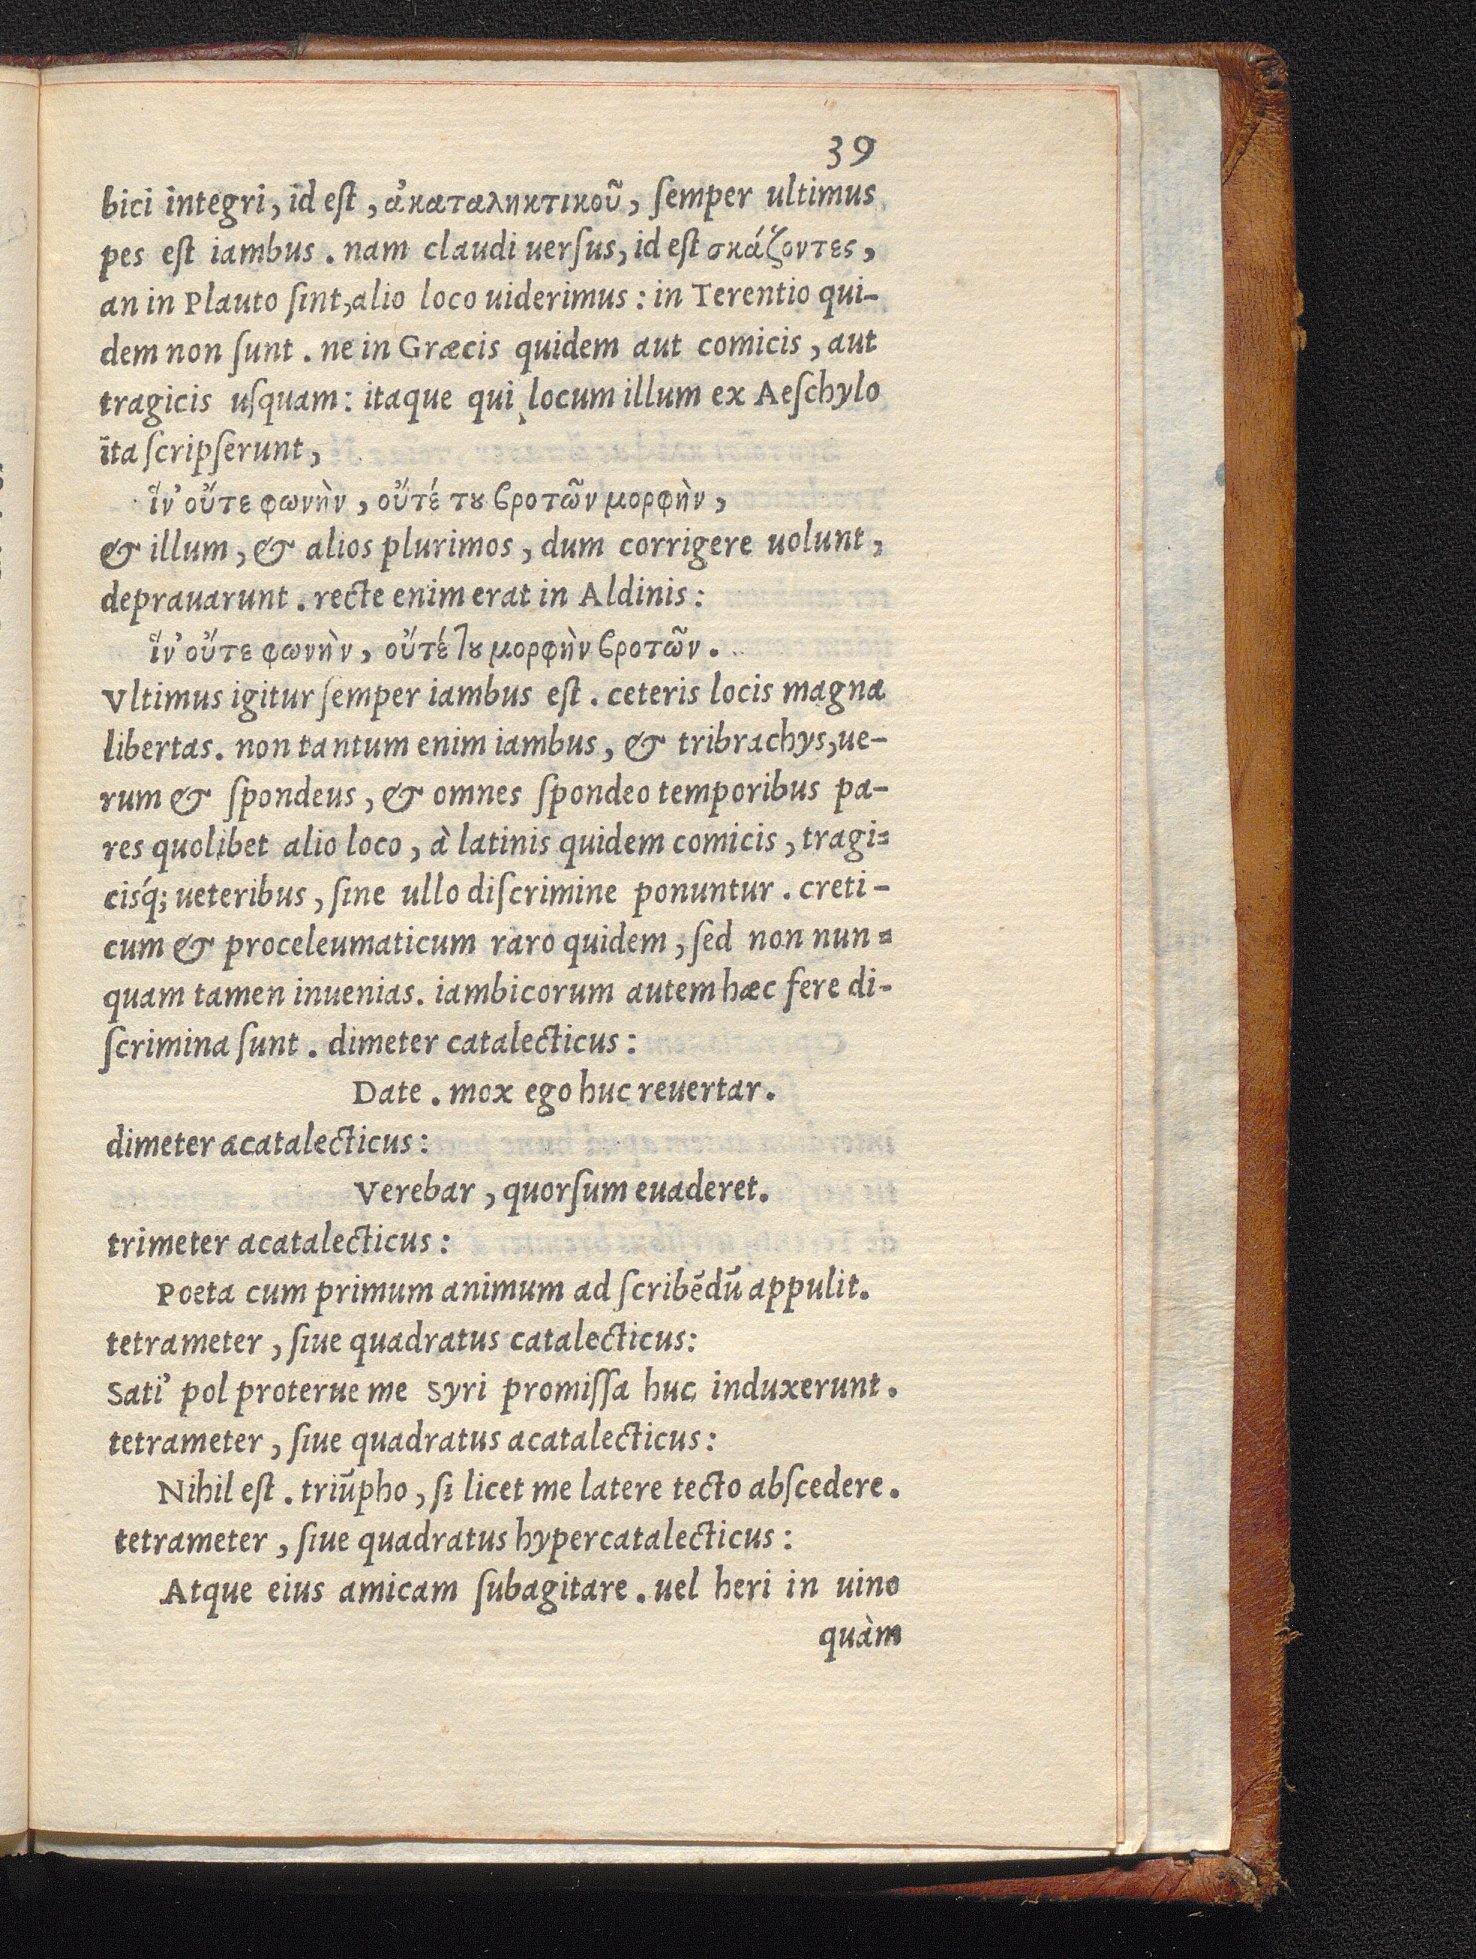 39
bici integri, id est, ἀκαταληκτικοῦ, ſemper ultimus
pes eſt iambus. nam claudi uerſus, id eſt σκάζοντες,
an in Plauto ſint, alio loco uiderimus: in Terentio qui-
dem non ſunt. ne in Græcis quidem aut comicis, aut
tragicis uſquam: itaque qui locum illum ex Aeſchylo
ita ſcripſerunt,
ἵν' οὔτε φωνὴν, οὔτέ του βροτῶν μορφὴν,
& illum, & alios plurimos, dum corrigere uolunt,
deprauarunt. recte enim erat in Aldinis:
ἵν' οὔτε φωνὴν, οὔτέ του μορφὴν βροτῶν.
Vltimus igitur ſemper iambus eſt. ceteris locis magna
libertas. non tantum enim iambus, & tribrachys, ue-
rum & ſpondeus, & omnes ſpondeo temporibus pa-
res quolibet alio loco, à latinis quidem comicis, tragi-
cisq́; ueteribus, ſine ullo diſcrimine ponuntur. creti-
cum & proceleumaticum raro quidem, ſed non nun-
quam tamen inuenias. iambicorum autem hæc fere di-
ſcrimina ſunt. dimeter catalecticus:
Date. mox ego huc reuertar.
dimeter acatalecticus:
Verebar, quorſum euaderet.
trimeter acatalecticus:
Poeta cum primum animum ad ſcribēdū appulit.
tetrameter, ſiue quadratus catalecticus:
Sati' pol proterue me Syri promiſſa huc induxerunt.
tetrameter, ſiue quadratus acatalecticus:
Nihil eſt. triūpho, ſi licet me latere tecto abſcedere.
tetrameter, ſiue quadratus hypercatalecticus:
Atque eius amicam ſubagitare. uel heri in uino
quàm